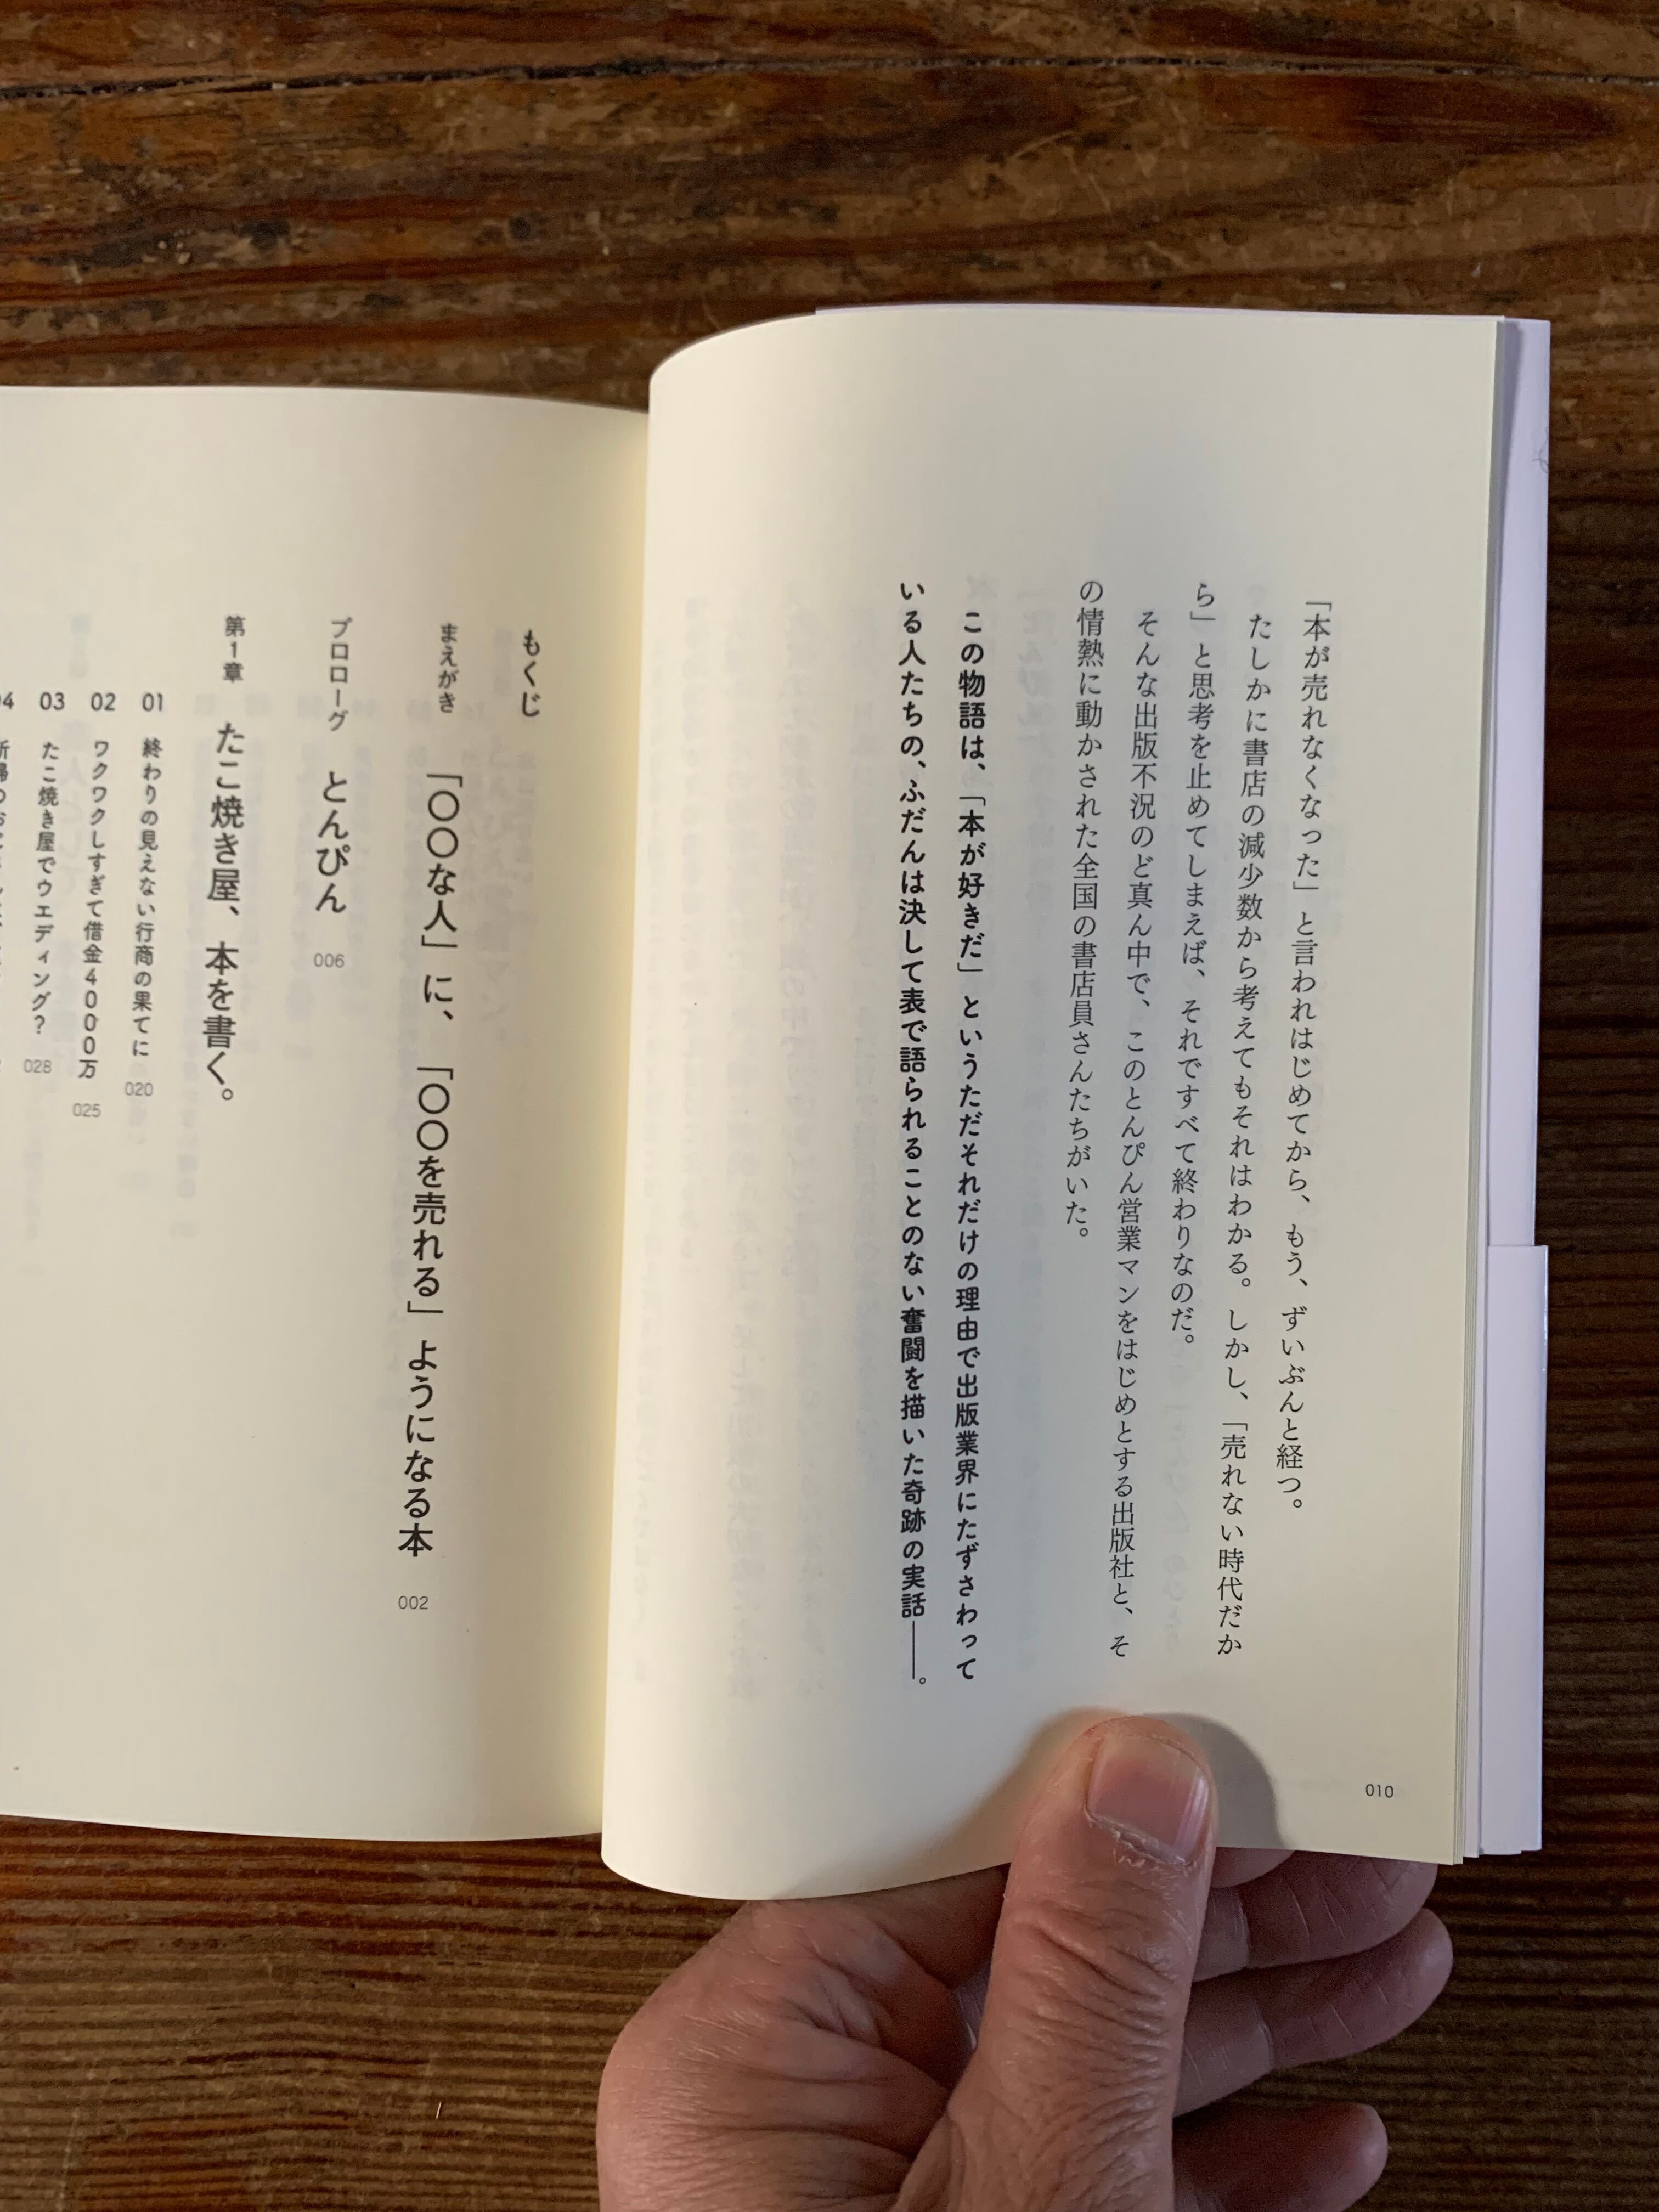 「本が売れなくなった」と言われはじめてから、もう、ずいぶんと経つ。
たしかに書店の減少数から考えてもそれはわかる。しかし、「売れない時代だか
ら」と思考を止めてしまえば、それですべて終わりなのだ。
そんな出版不況のど真ん中で、このとんぴん営業マンをはじめとする出版社と、そ
の情熱に動かされた全国の書店員さんたちがいた。
この物語は、「本が好きだ」というただそれだけの理由で出版業界にたずさわって
いる人たちの、ふだんは決して表で語られることのない奮闘を描いた奇跡の実話――。
010
もくじ
まえがき 「〇〇な人」に、「〇〇を売れる」ようになる本 002
プロローグ とんぴん 006
第1章 たこ焼き屋、本を書く。
01 終わりの見えない行商の果てに 020
02 ワクワクしすぎて借金4000万 025
03 たこ焼き屋でウエディング? 028